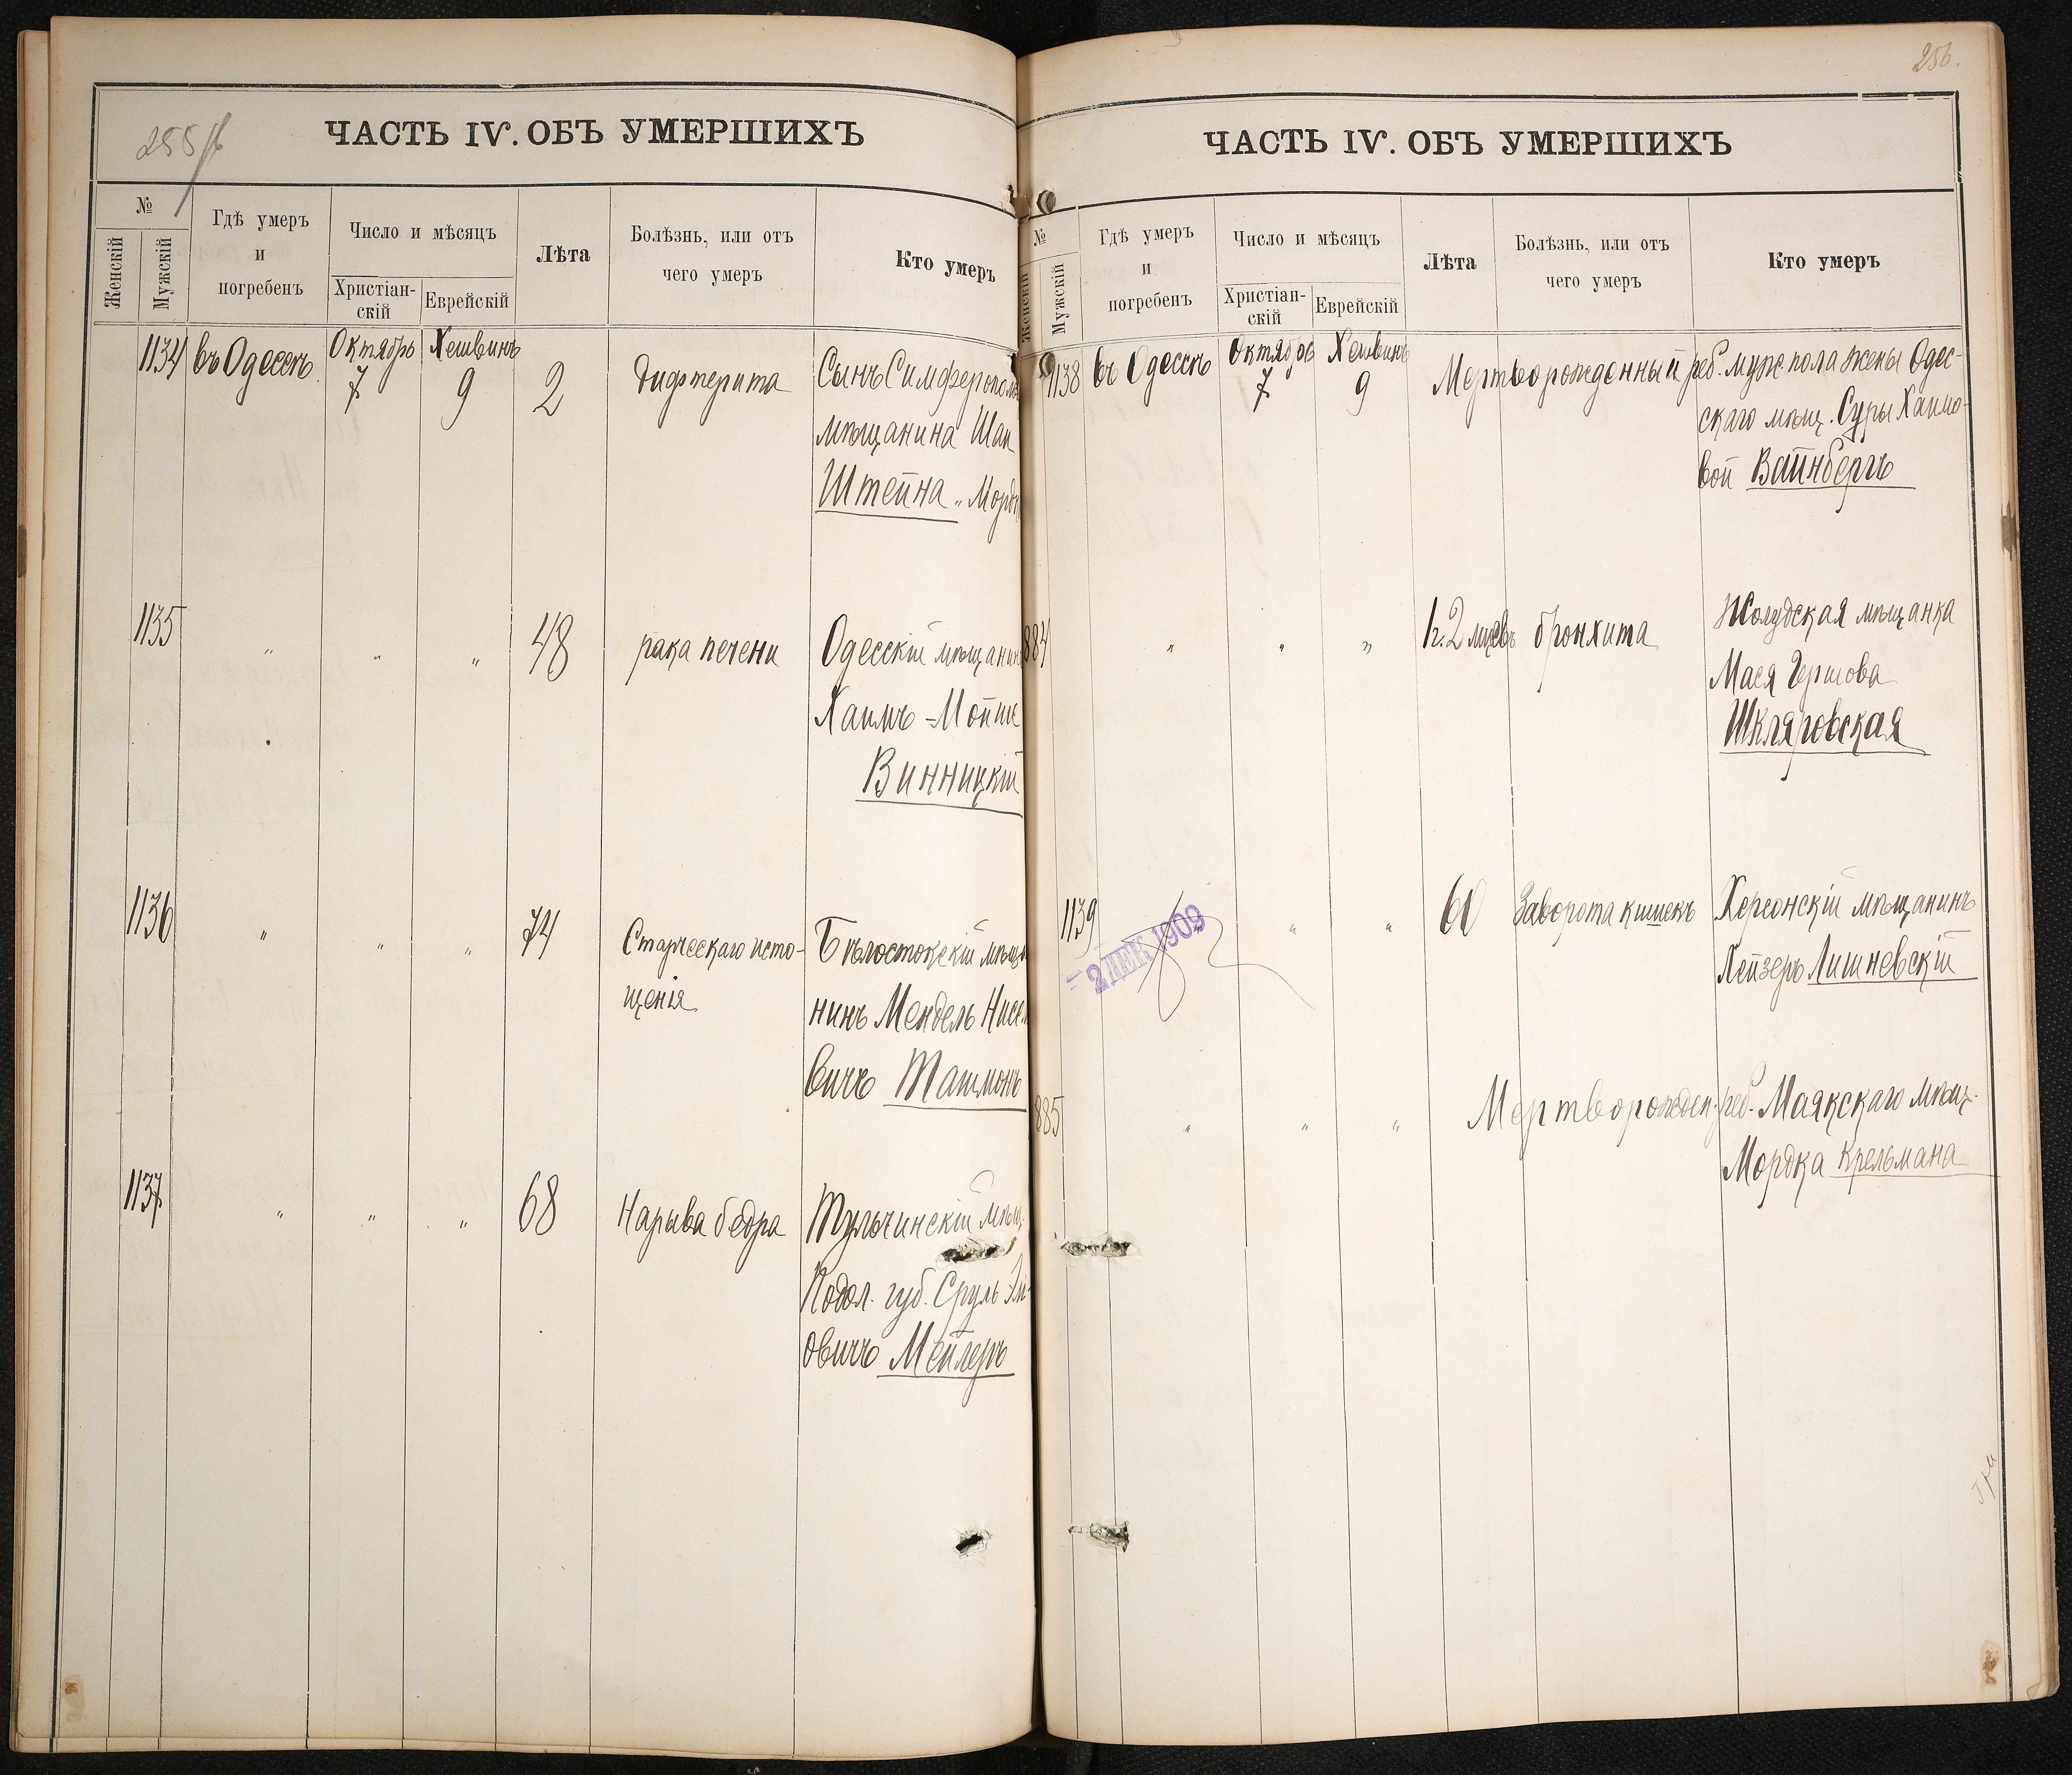 255/б
ЧАСТЬ IV. ОБЪ УМЕРШИХЪ
№
Женскій
Мужскій
Гдѣ умеръ
и
погребенъ
Число и мѣсяцъ
Христіан-
скій
Еврейскій
Лѣта
Болѣзнь, или отъ
чего умеръ
Кто умеръ
1134 въ Одессѣ Октябрь 7 Хешвинъ 9 2 дифтерита Сынъ Симферопол
мѣщанина
Штейна „ Мордк
1135 „ „ „ 48 рака печени Одесскій мѣщанин
Хаимъ-Мойше
Винницкій
1136 „ „ „ 74 Старческаго исто- Бѣлостокскій мѣща
щенія нинъ Мендель Нисел
вичъ Ташмонъ
1137 „ „ „ 68 Нарыва бедра Тульчинскій мѣщ.
Подол. губ. Сруль
овичъ Мейлеръ
256.
ЧАСТЬ IV. ОБЪ УМЕРШИХЪ
№
Женскій
Мужскій
Гдѣ умеръ
и
погребенъ
Число и мѣсяцъ
Христіан-
скій
Еврейскій
Лѣта
Болѣзнь, или отъ
чего умеръ
Кто умеръ
1138 въ Одессѣ Октябрь 7 Хешвинъ 9 Мертворожденный реб. муж. пола жены Одес-
скаго мѣщ. Суры Хаимо-
вой Вайнбергъ
884 „ „ „ 1 г. 2 мѣсв бронхита Жолудская мѣщанка
Мася Гершова
Шкляровская
1139 „ „ „ 60 Заворота кишекъ Херсонскій мѣщанинъ
Лейзеръ Лишневскій
2 ДЕК 1909
885 „ „ „ Мертворожден. реб. Маякскаго мѣщ.
Мордка Крельмана